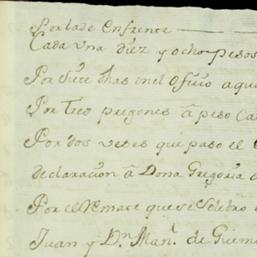 Por la de enfrente
Cada Una diez y ocho pesos
Por Siete dias en el Ofisio a que
Por Treo pregones â peso Ca
Por dos veses que paso el
declarasion â Dona Gregoria
Por el Remate que se Selebro
Juan y Dn Man.l de Guem